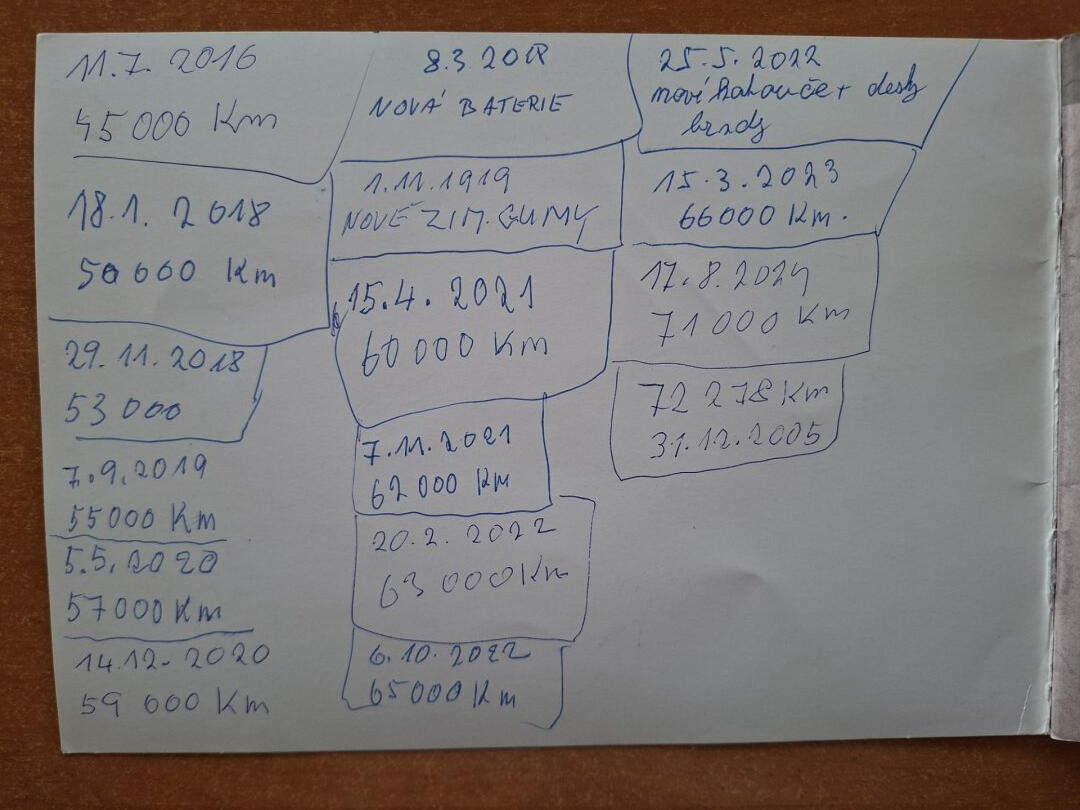 11.7. 2016
45000 Km
18.1. 2018
50 000 Km
29.11.2018
53 000
7.9.2019
55000 Km
5.5.2020
57000 Km
14.12.2020
59 000 Km
8.3.2018
NOVÁ BATERIE
1.11.1919
NOVÉ ZIM. GUMY
15.4.2021
60 000 Km
7.11.2021
62 000 Km
20.2.2022
63 000 Km
6.10.2022
65000 Km
25.5.2022
nové kotouče + desky
brzdy
15.3.2023
66000 Km.
17.8.2024
71 000 Km
72 278 Km
31.12.2005